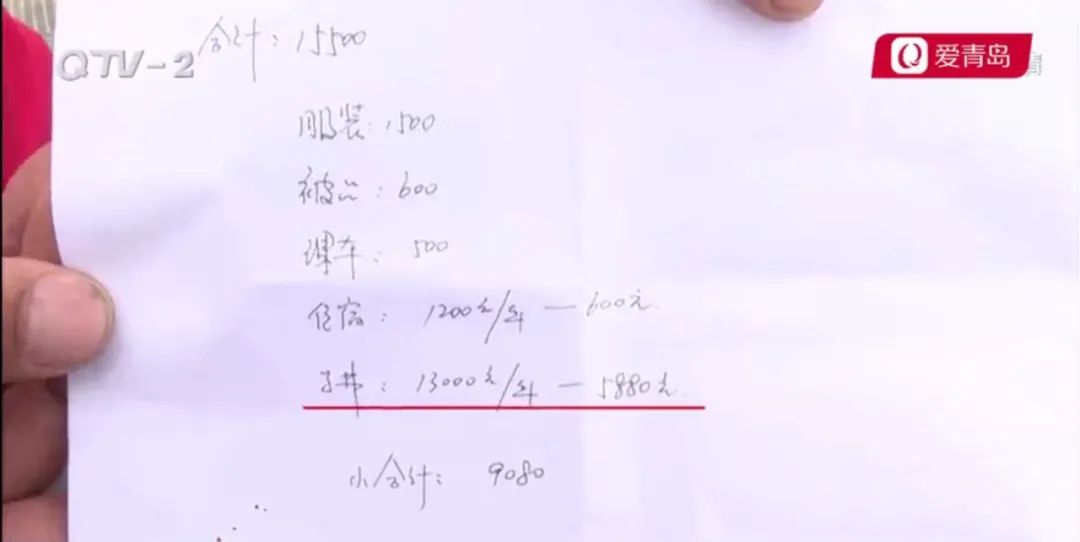 QTV-2
爱青岛
合计：15500
服装：1500
被品：600
课本：500
住宿：1200元/年 — 600元
学费：13000元/年 — 5880元
小合计：9080